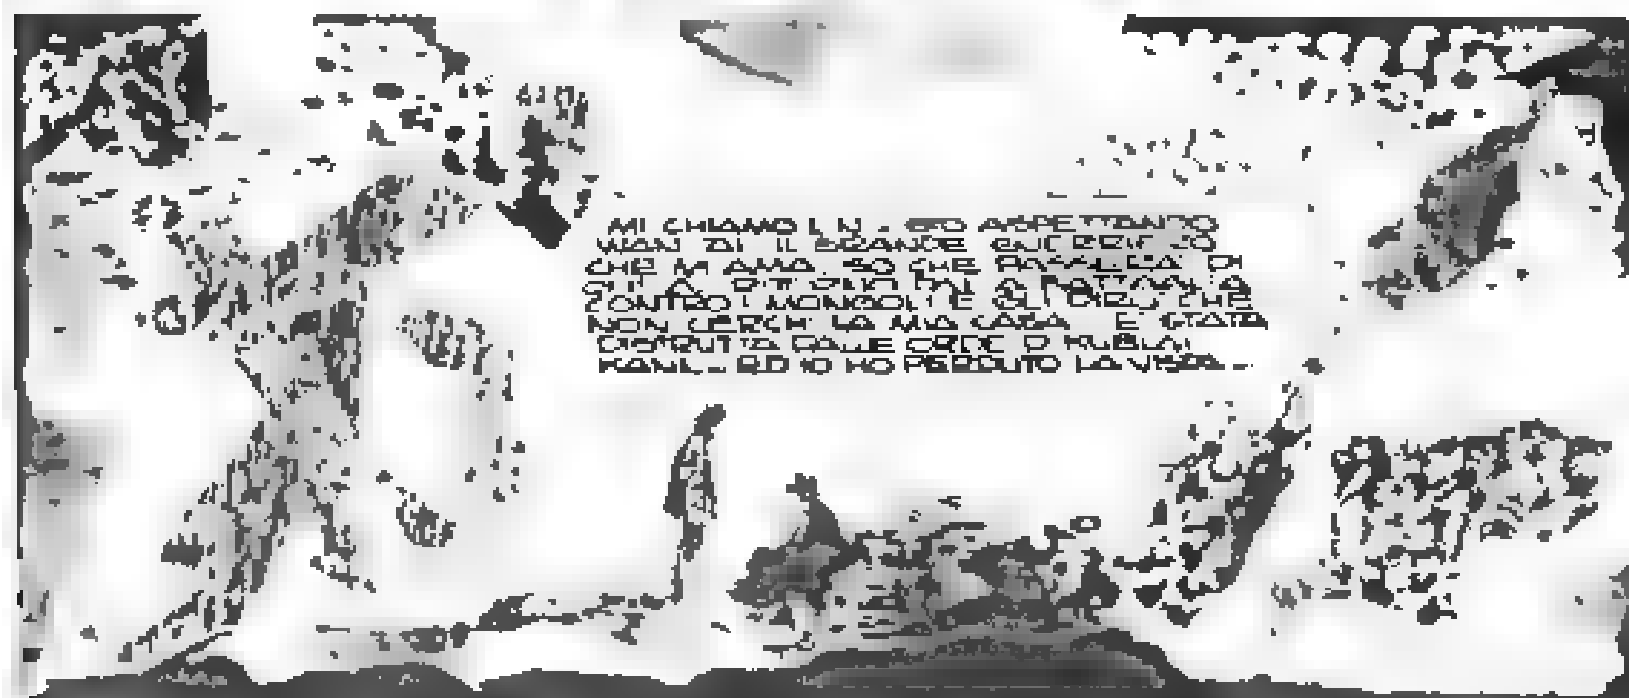 MI CHIAMO LIN. STO ASPETTANDO
WAN IL GRANDE GUERRIERO
CHE MI AMA. SO CHE PASSERA' DI
QUI AL RITORNO DALLA BATTAGLIA
CONTRO I MONGOLI E GLI DIRO' CHE
NON CERCHI LA MIA CASA E' STATA
DISTRUTTA DALLE ORDE DI KUBLAI
KAN... ED IO HO PERDUTO LA VISTA...